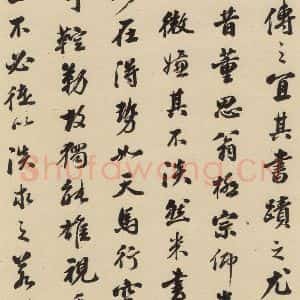 傳之宜其書蹟之尤
昔董思翁極宗仰
微嫌其不淡然米書
在得勢如天馬行空
鞚勒故獨能雄視
不必徒以淡求之
Shufawang.CN